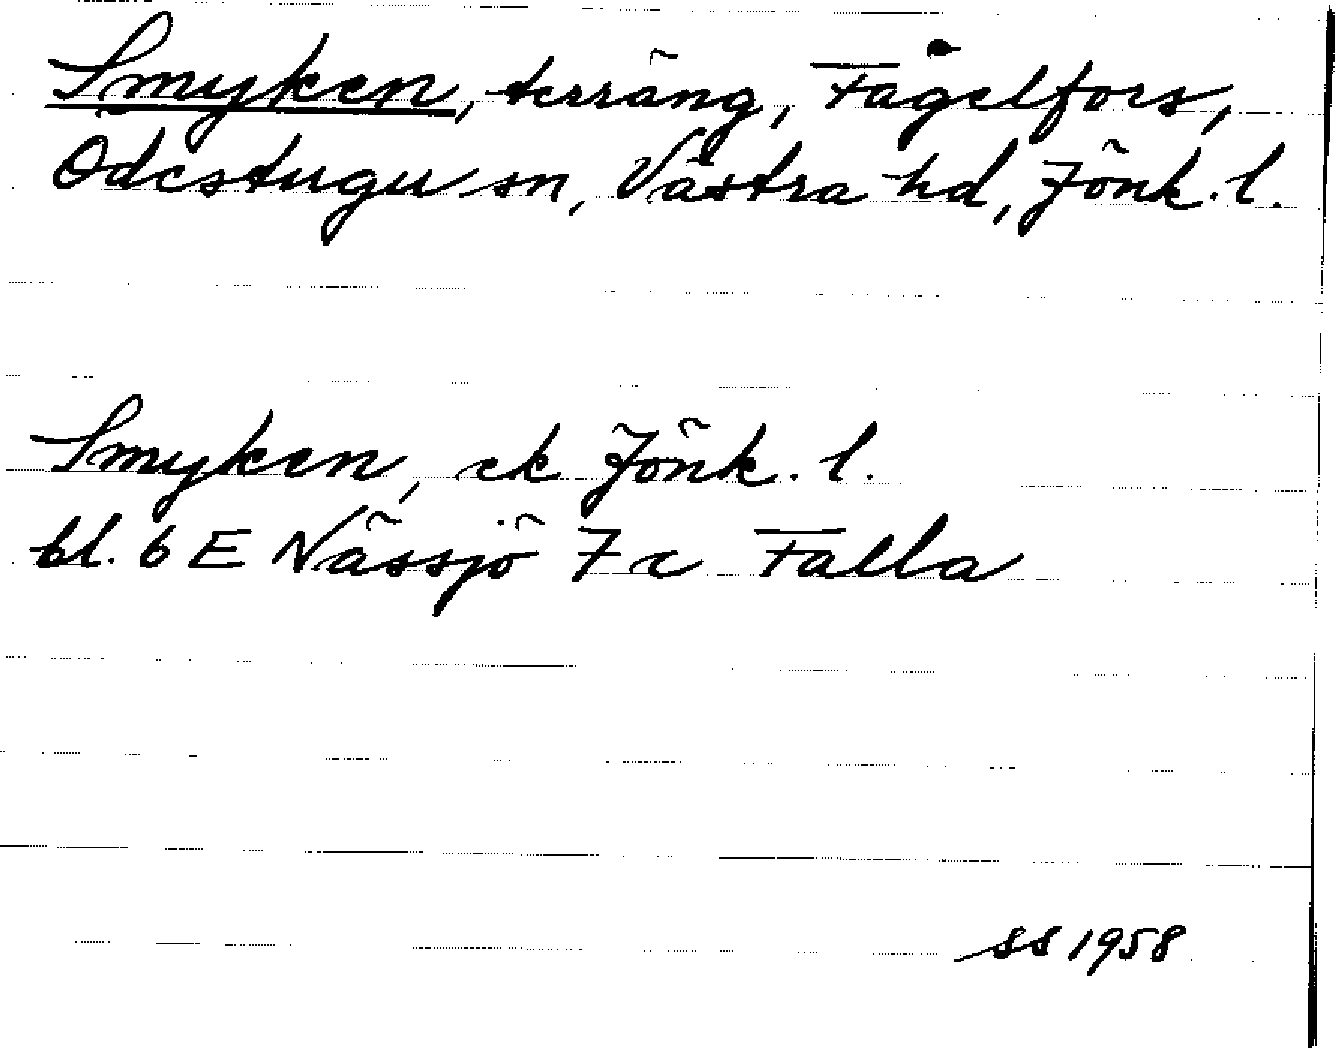 Smyken, terräng, Fågelfors,
Ödestugu sn, Västra hd, Jönk. l.
Smyken, ek Jönk. l.
bl. 6 E Nässjö 7 c Falla
SS 1958